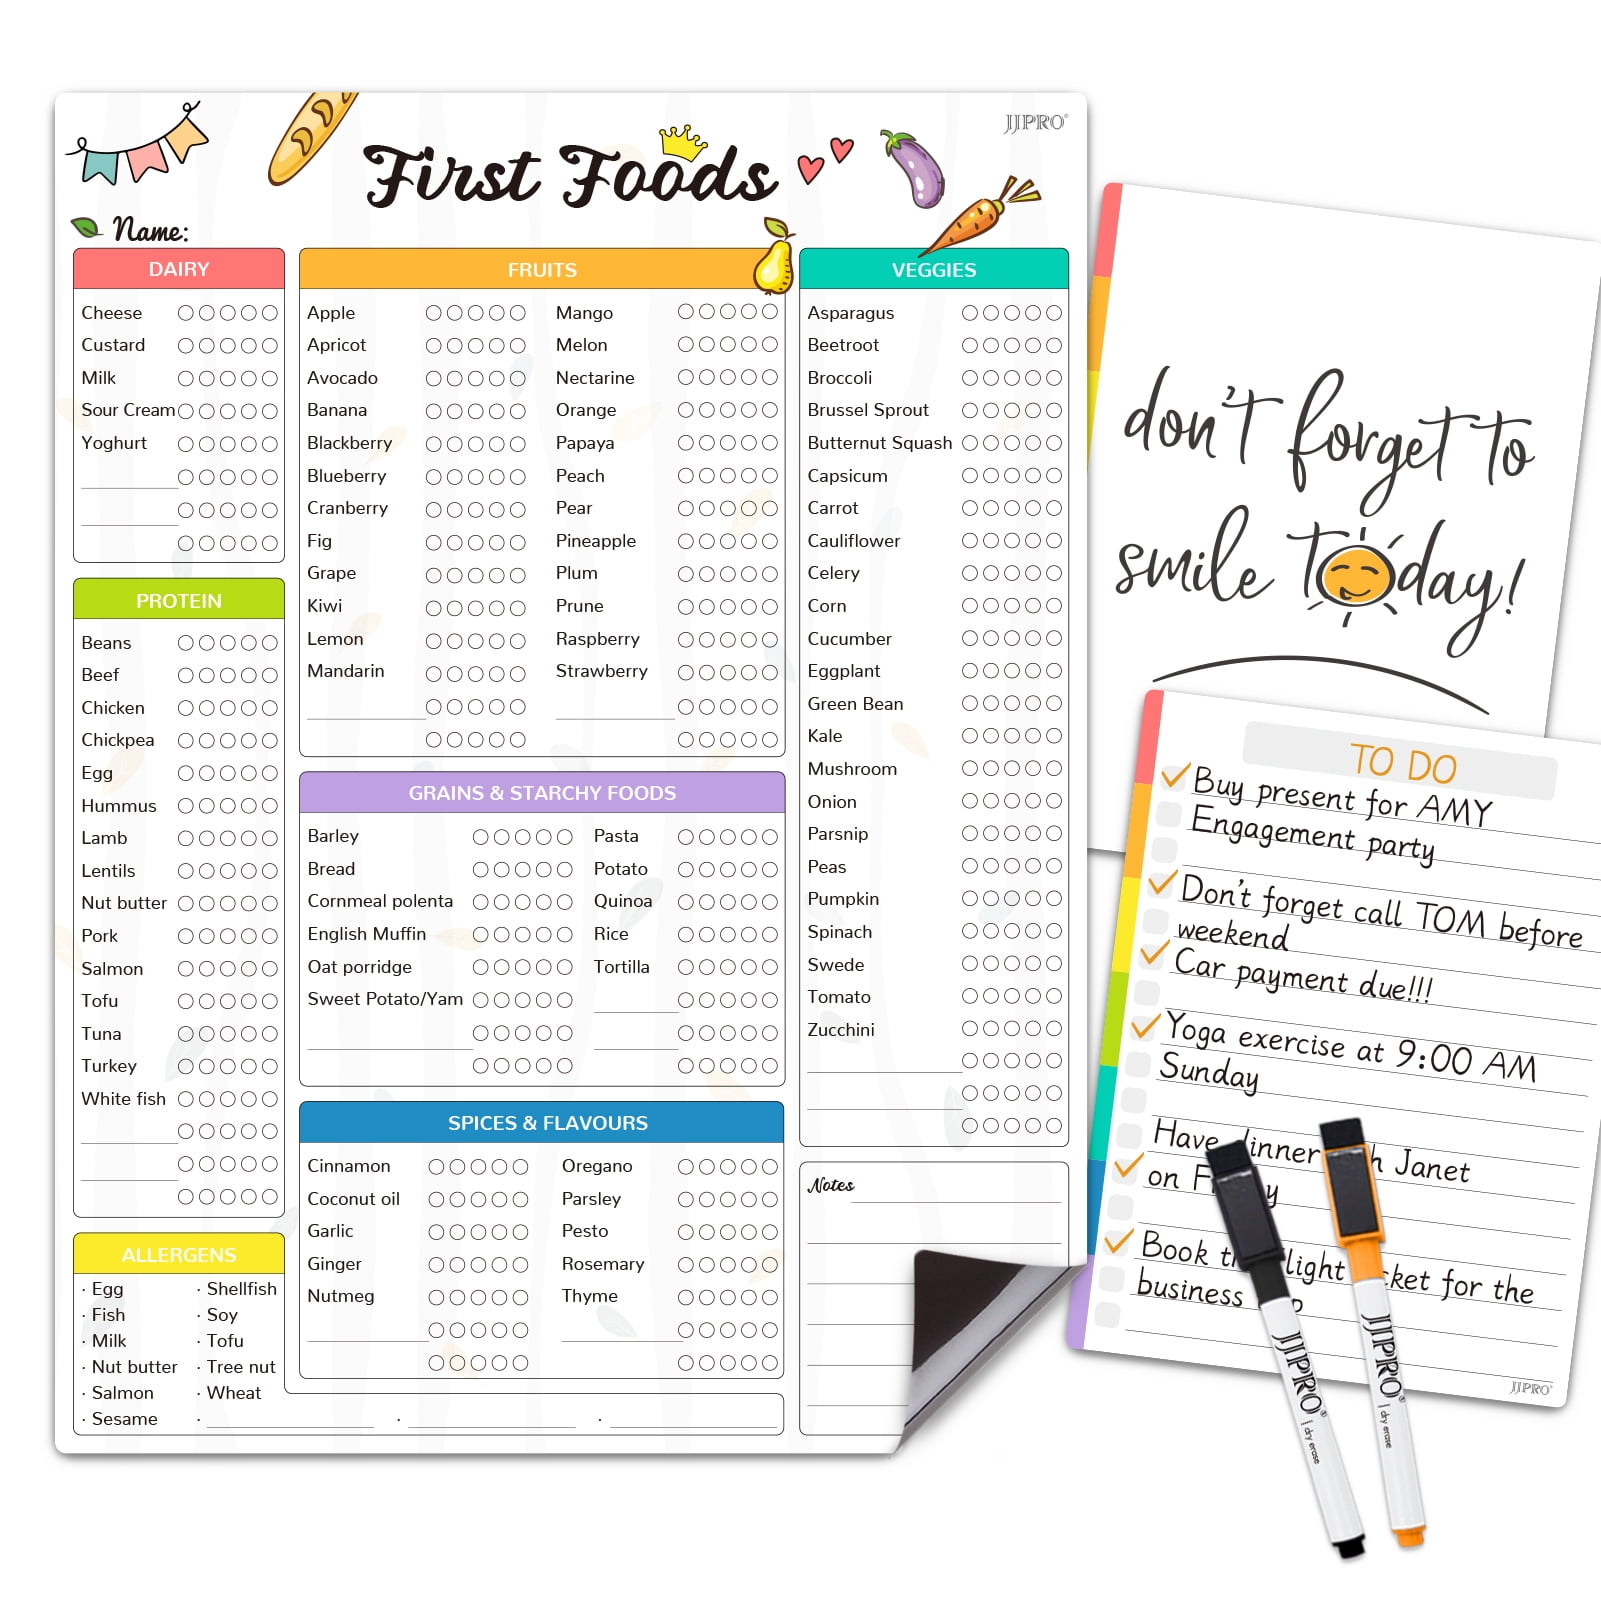 JJPRO®
First Foods
Name:
DAIRY
Cheese
Custard
Milk
Sour Cream
Yoghurt
PROTEIN
Beans
Beef
Chicken
Chickpea
Egg
Hummus
Lamb
Lentils
Nut butter
Pork
Salmon
Tofu
Tuna
Turkey
White fish
ALLERGENS
· Egg
· Fish
· Milk
· Nut butter
· Salmon
· Sesame
· Shellfish
· Soy
· Tofu
· Tree nut
· Wheat
FRUITS
Apple
Apricot
Avocado
Banana
Blackberry
Blueberry
Cranberry
Fig
Grape
Kiwi
Lemon
Mandarin
Mango
Melon
Nectarine
Orange
Papaya
Peach
Pear
Pineapple
Plum
Prune
Raspberry
Strawberry
GRAINS & STARCHY FOODS
Barley
Bread
Cornmeal polenta
English Muffin
Oat porridge
Sweet Potato/Yam
Pasta
Potato
Quinoa
Rice
Tortilla
SPICES & FLAVOURS
Cinnamon
Coconut oil
Garlic
Ginger
Nutmeg
Oregano
Parsley
Pesto
Rosemary
Thyme
VEGGIES
Asparagus
Beetroot
Broccoli
Brussel Sprout
Butternut Squash
Capsicum
Carrot
Cauliflower
Celery
Corn
Cucumber
Eggplant
Green Bean
Kale
Mushroom
Onion
Parsnip
Peas
Pumpkin
Spinach
Swede
Tomato
Zucchini
Notes
don't forget to
smile today!
TO DO
Buy present for AMY
Engagement party
Don't forget call TOM before
weekend
Car payment due!!!
Yoga exercise at 9:00 AM
Sunday
Have Janet
on
Book for the
business
JJPRO®
JJPRO® | dry erase
JJPRO® | dry erase